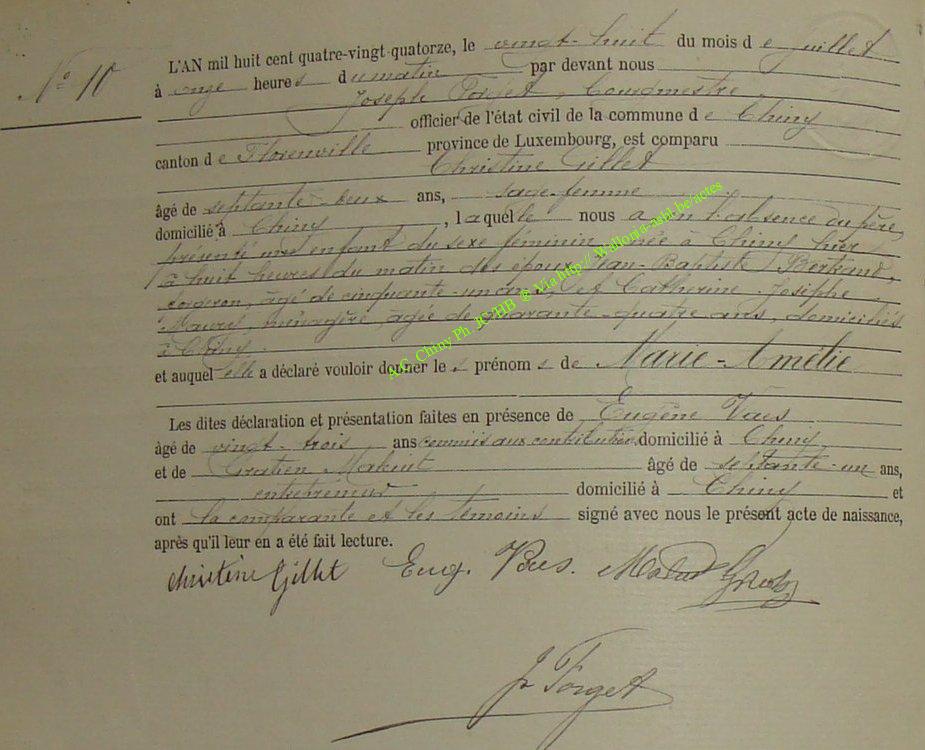 N° 10
L'AN mil huit cent quatre-vingt-quatorze, le vingt-huit du mois de Juillet
à onze heures du matin par devant nous
Joseph Forget, bourgmestre
officier de l'état civil de la commune de Chiny
canton de Florenville province de Luxembourg, est comparu
Christine Gillet
âgé de septante-deux ans, sage-femme
domicilié à Chiny, laquelle nous a en l'absence du père,
présenté une enfant du sexe féminin, née à Chiny hier
à huit heures du matin des époux Jean-Baptiste Bertrand,
forgeron, âgé de cinquante-un ans, et Catherine-Josèphe
ménagère, âgée de quarante-quatre ans, domiciliés
à Chiny.
et auquel elle a déclaré vouloir donner les prénoms de Marie-Amélie
Les dites déclaration et présentation faites en présence de Eugène Vaes
âgé de vingt-trois ans commis aux contributions, domicilié à Chiny
et de Gratien âgé de septante-un ans,
entrepreneur domicilié à Chiny et
ont la comparante et les témoins signé avec nous le présent acte de naissance,
après qu'il leur en a été fait lecture.
Christine Gillet Eug. Vaes.
J. Forget
A.G. Chiny Ph. JC/HB @ Via http://Wallonia-asbl.be/actes